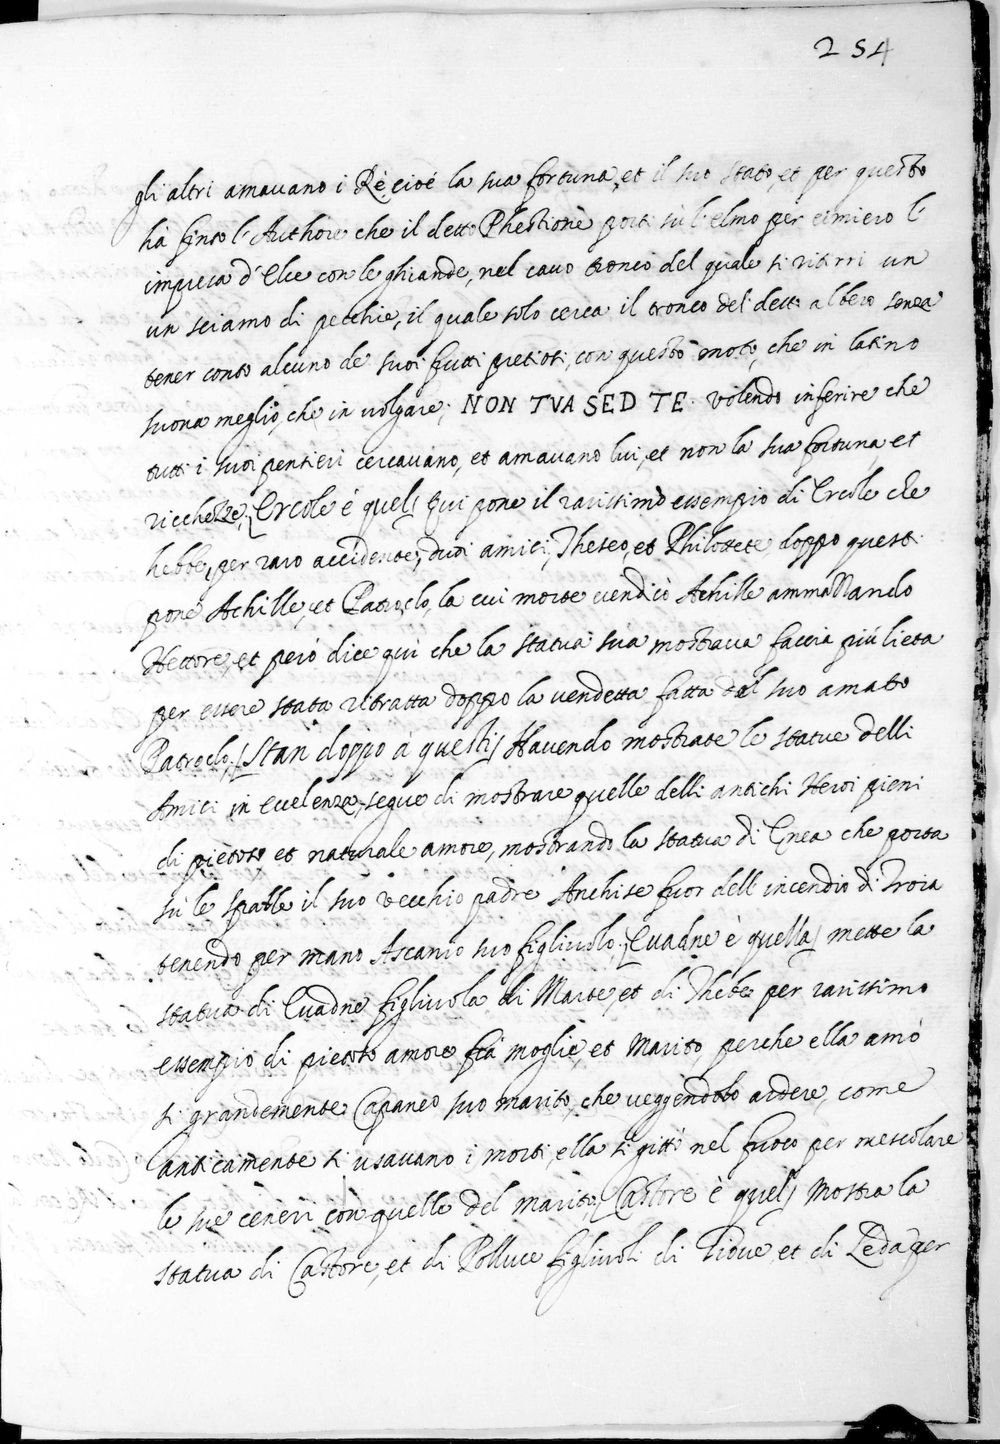 254
gli altri amauano i Rè cioé la sua fortuna, et il suo stato, et per questo
hà finto l'Authore che il detto Phestione porti sù l'elmo per cimiero l'
impresa d'Elce con le ghiande, nel cauo tronco del quale si ritirri un
un sciamo di pecchie, il quale solo cerca il tronco del detto albero senza
tener conto alcuno de suoi frutti pretiosi, con questo moto, che in latino
suona meglio, che in uolgare; NON TVA SED TE. volendo inferire che
tutti i suoi pensieri cercauano, et amauano lui, et non la sua fortuna et
ricchezze; [Ercole é quel] Qui pone il rarissimo essempio di Ercole che
hebbe, per raro accidente, duoi amici, Theseo, et Philottete doppo questi
pone Achille, et Patroclo, la cui morte uendicò Achille ammazzando
Hettore, et però dice qui che la statua sua mostraua faccia più lieta
per essere stata ritratta doppo la uendetta fatta del suo amato
Patroclo, [Stan doppo à questi] Hauendo mostrate le statue delli
Amici in ecelenza, segue di mostrare quelle delli antichi Heroi pieni
di pietoso et naturale amore, mostrando la statua di Enea che porta
sù le spalle il suo vecchio padre Anchise fuor dell incendio di Troia
tenendo per mano Ascanio suo figliuolo, [Euadne è quella] mette la
statua di Euadne figliuola di Marte, et di Thebe per rarissimo
essempio di pietoso amore frà moglie, et Marito perche ella amò
si grandemente Capaneo suo marito, che ueggendolo ardere, come
anticamente si usauano i morti, ella si gittò nel fuoco per mescolare
le sue ceneri con quelle del marito, [Castore è quel] Mostra la
statua di Castore, et di Polluce figliuoli di Gioue, et di Leda per